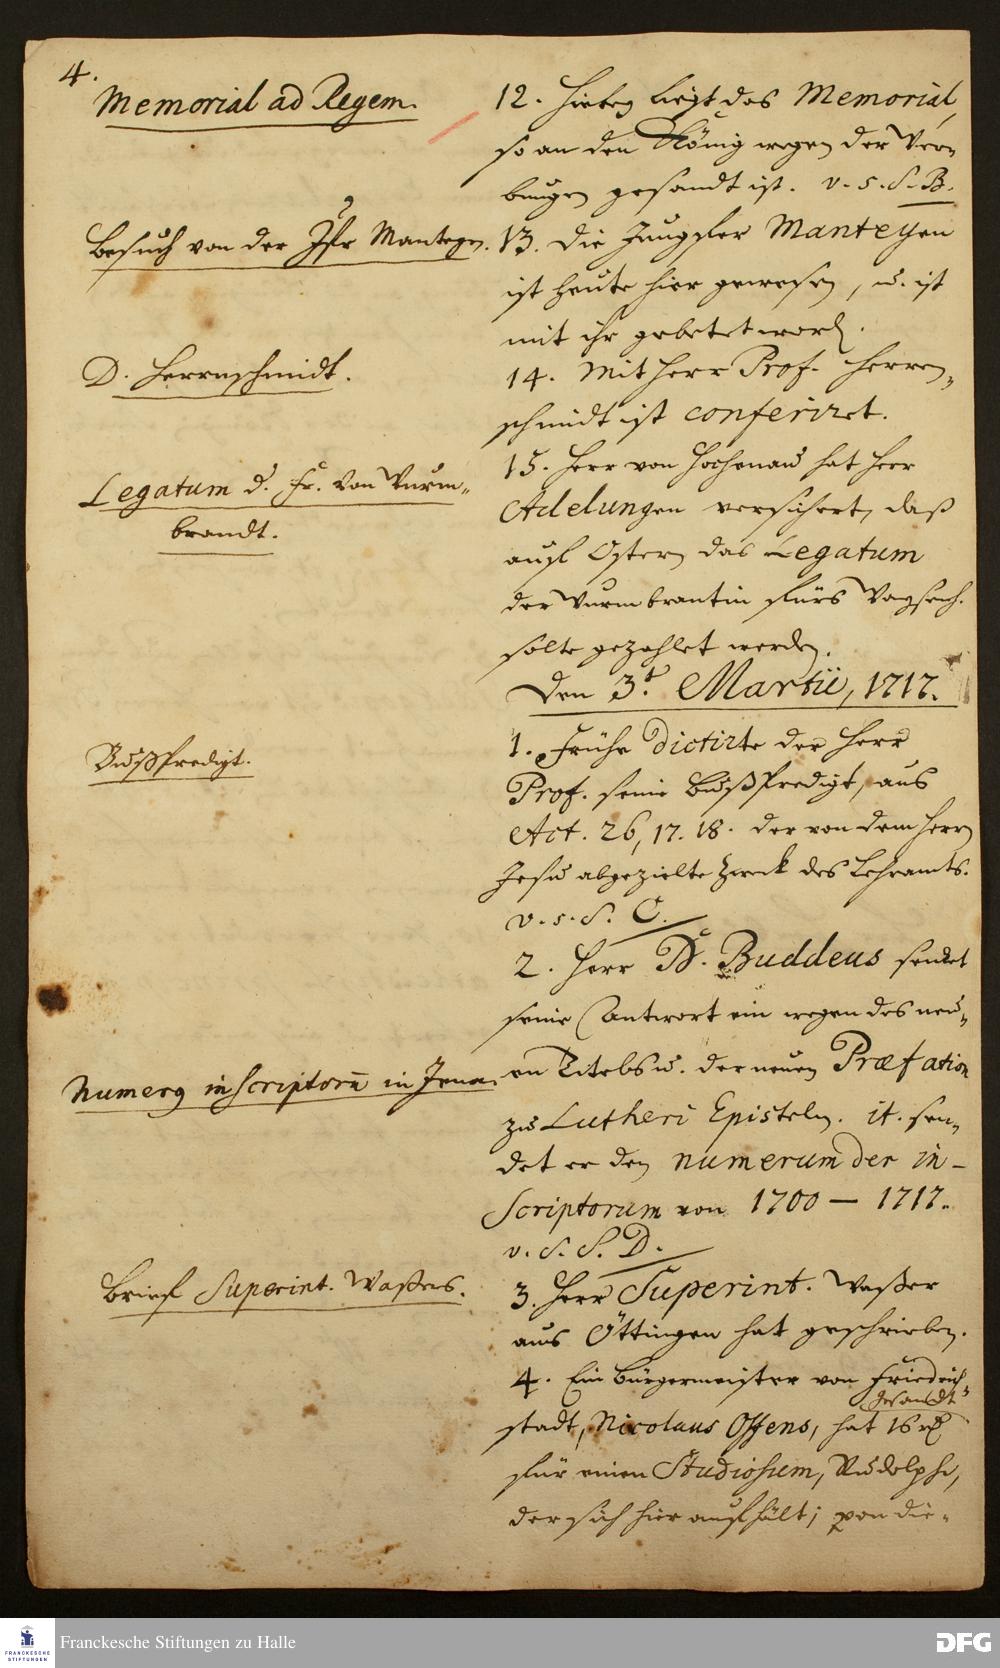 4.
Memorial ad Regem.
12. Hiebey liegt das Memorial,
so an den König wegen der Wer-
bungen gesandt ist. v. s. S. B.
Besuch von der Jfr Manteyn.
13. Die Jungfer Manteyen
ist heute hier gewesen, u. ist
mit ihr gebetet word.
D. Herrnschmidt.
14. Mit Herr Prof. Herren-
schmidt ist conferiret.
Legatum d. Fr. von Wurm-
brandt.
15. Herr von Hochenau hat Herr
Adelungen versichert, daß
auf Ostern das Legatum
der Wurmbrantin fürs Waysenh.
solte gezahlet werden.
Den 3t. Martii, 1717.
Bußpredigt.
1. Frühe dictirte der Herr
Prof. seine Bußpredigt, aus
Act. 26, 17. 18. der von dem Herrn
Jesu abgezielte Zweck des Lehramts.
v. s. S. C.
2. Herr D. Buddeus sendet
seine Antwort ein wegen des neu-
Numerus inscriptorum in Jena.
en Titels u. der neuen Præfation
zu Lutheri Episteln. it. sen-
det er den numerum der in-
scriptorum von 1700 — 1717.
v. S. S. D.
Brief Superint. Waßers.
3. Herr Superint. Waßer
aus Öttingen hat geschrieben.
4. Ein Bürgermeister von Friedrich-
gesandt
stadt, Nicolaus Offens, hat 16 rl
für einen Studiosum, Rudolphi,
der sich hier aufhält; von die-
Franckesche Stiftungen zu Halle
FRANCKESCHE
STIFTUNGEN
DFG